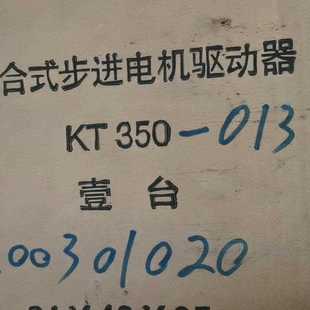 合式步进电机驱动器
KT 350-013
壹 台
00301020